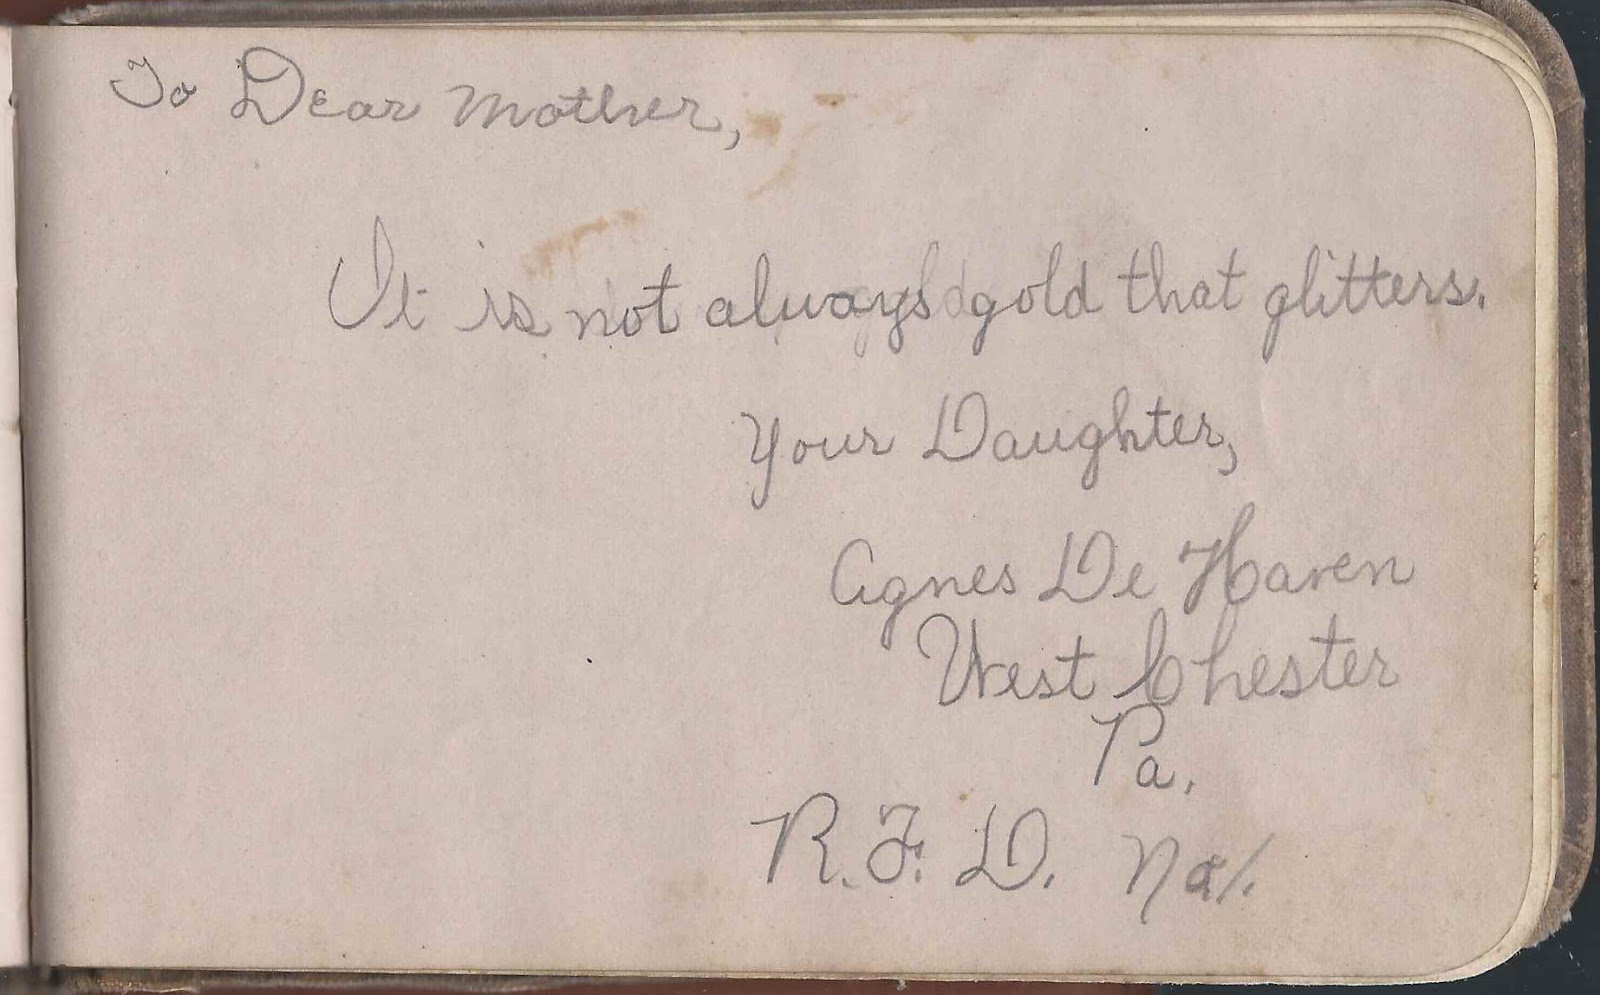 To Dear Mother,
It is not always gold that glitters.
Your Daughter,
Agnes De Haven
West Chester
Pa.
R. F. D. No 1.